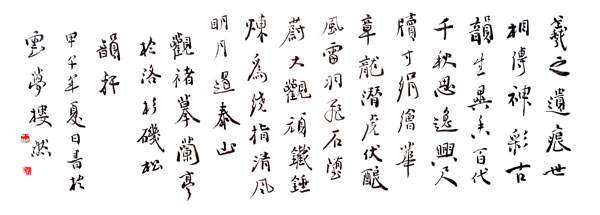 羲之遺痕世
相傳神彩古
韻生異香百代
千秋思逸興尺
牘寸絹繪華
章龍潛虎伏釀
風雷羽飛石墮
蔚大觀頑鐵錘
煉為繞指清風
明月過泰山
觀褚摹蘭亭
於洛杉磯松
韻軒
甲午年夏日書於
雲夢樓